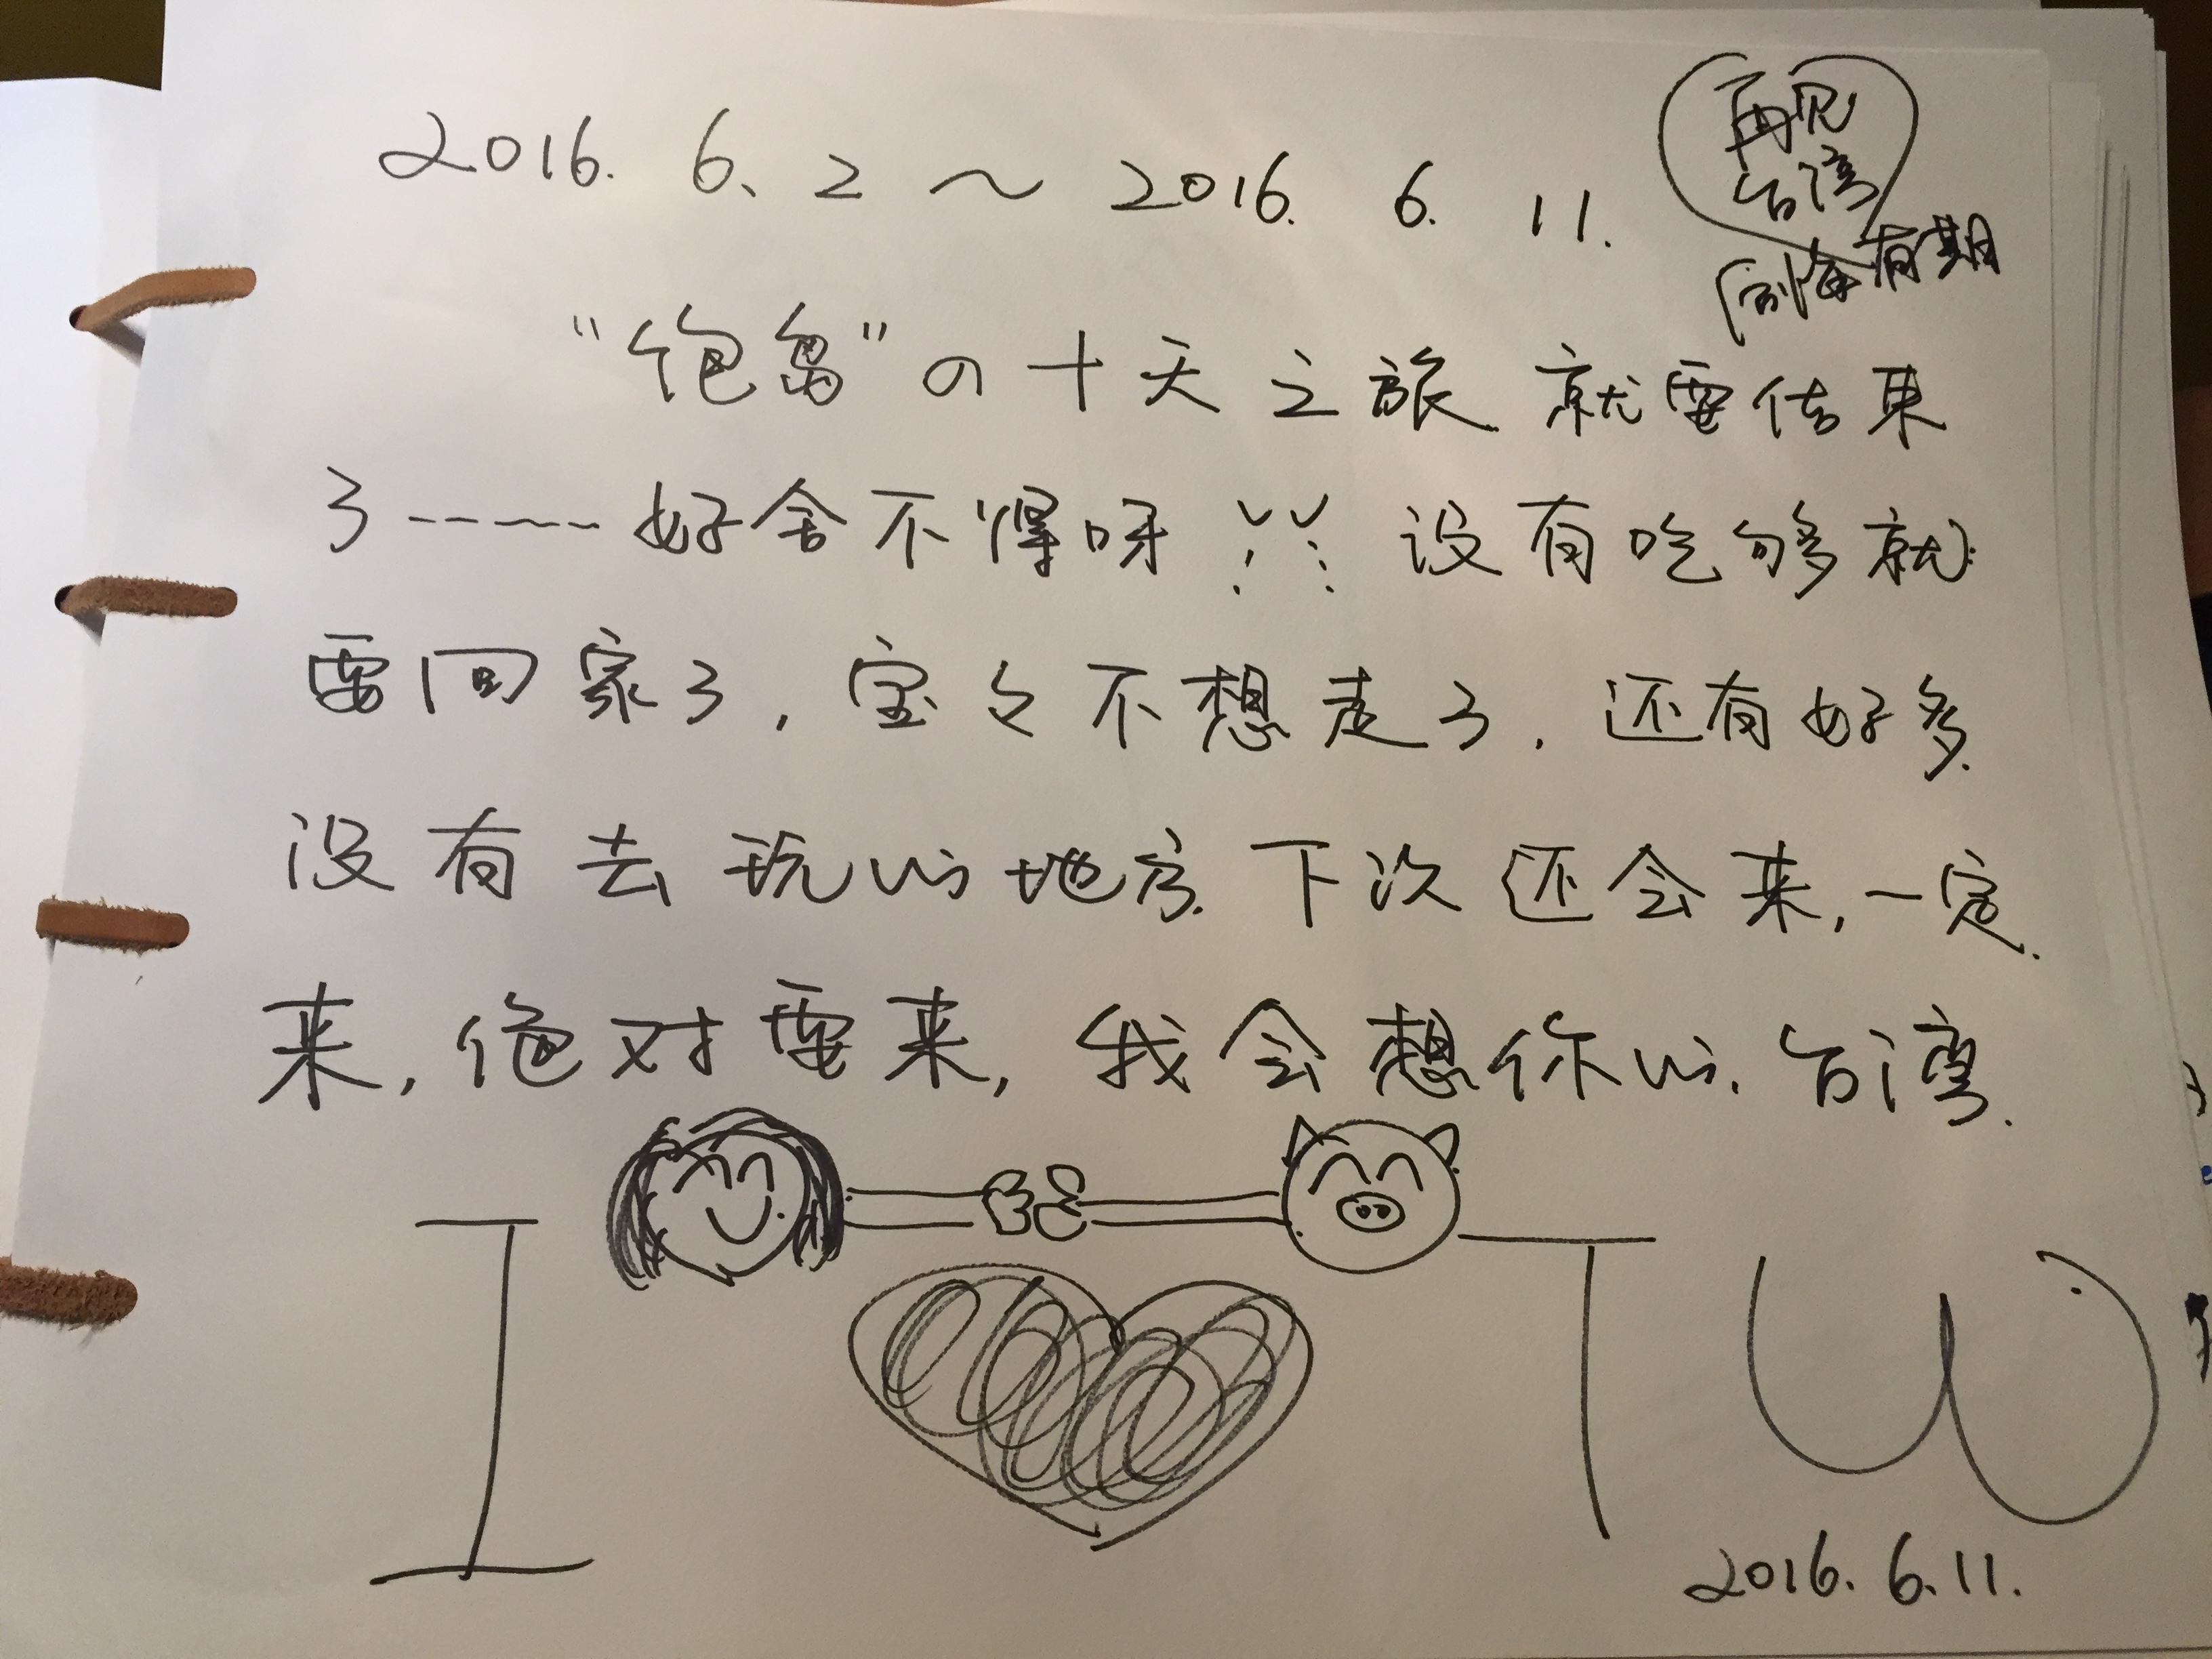 2016. 6. 2 ~ 2016. 6. 11.
再见
台湾
有期
"饱岛"の十天之旅 就要结束
了------好舍不得呀!! 没有吃够就
要回家了,宝々不想走了,还有好多
没有去玩的地方.下次还会来,一定
来,绝对要来,我会想你的,台湾.
I ♥ TW
2016. 6. 11.